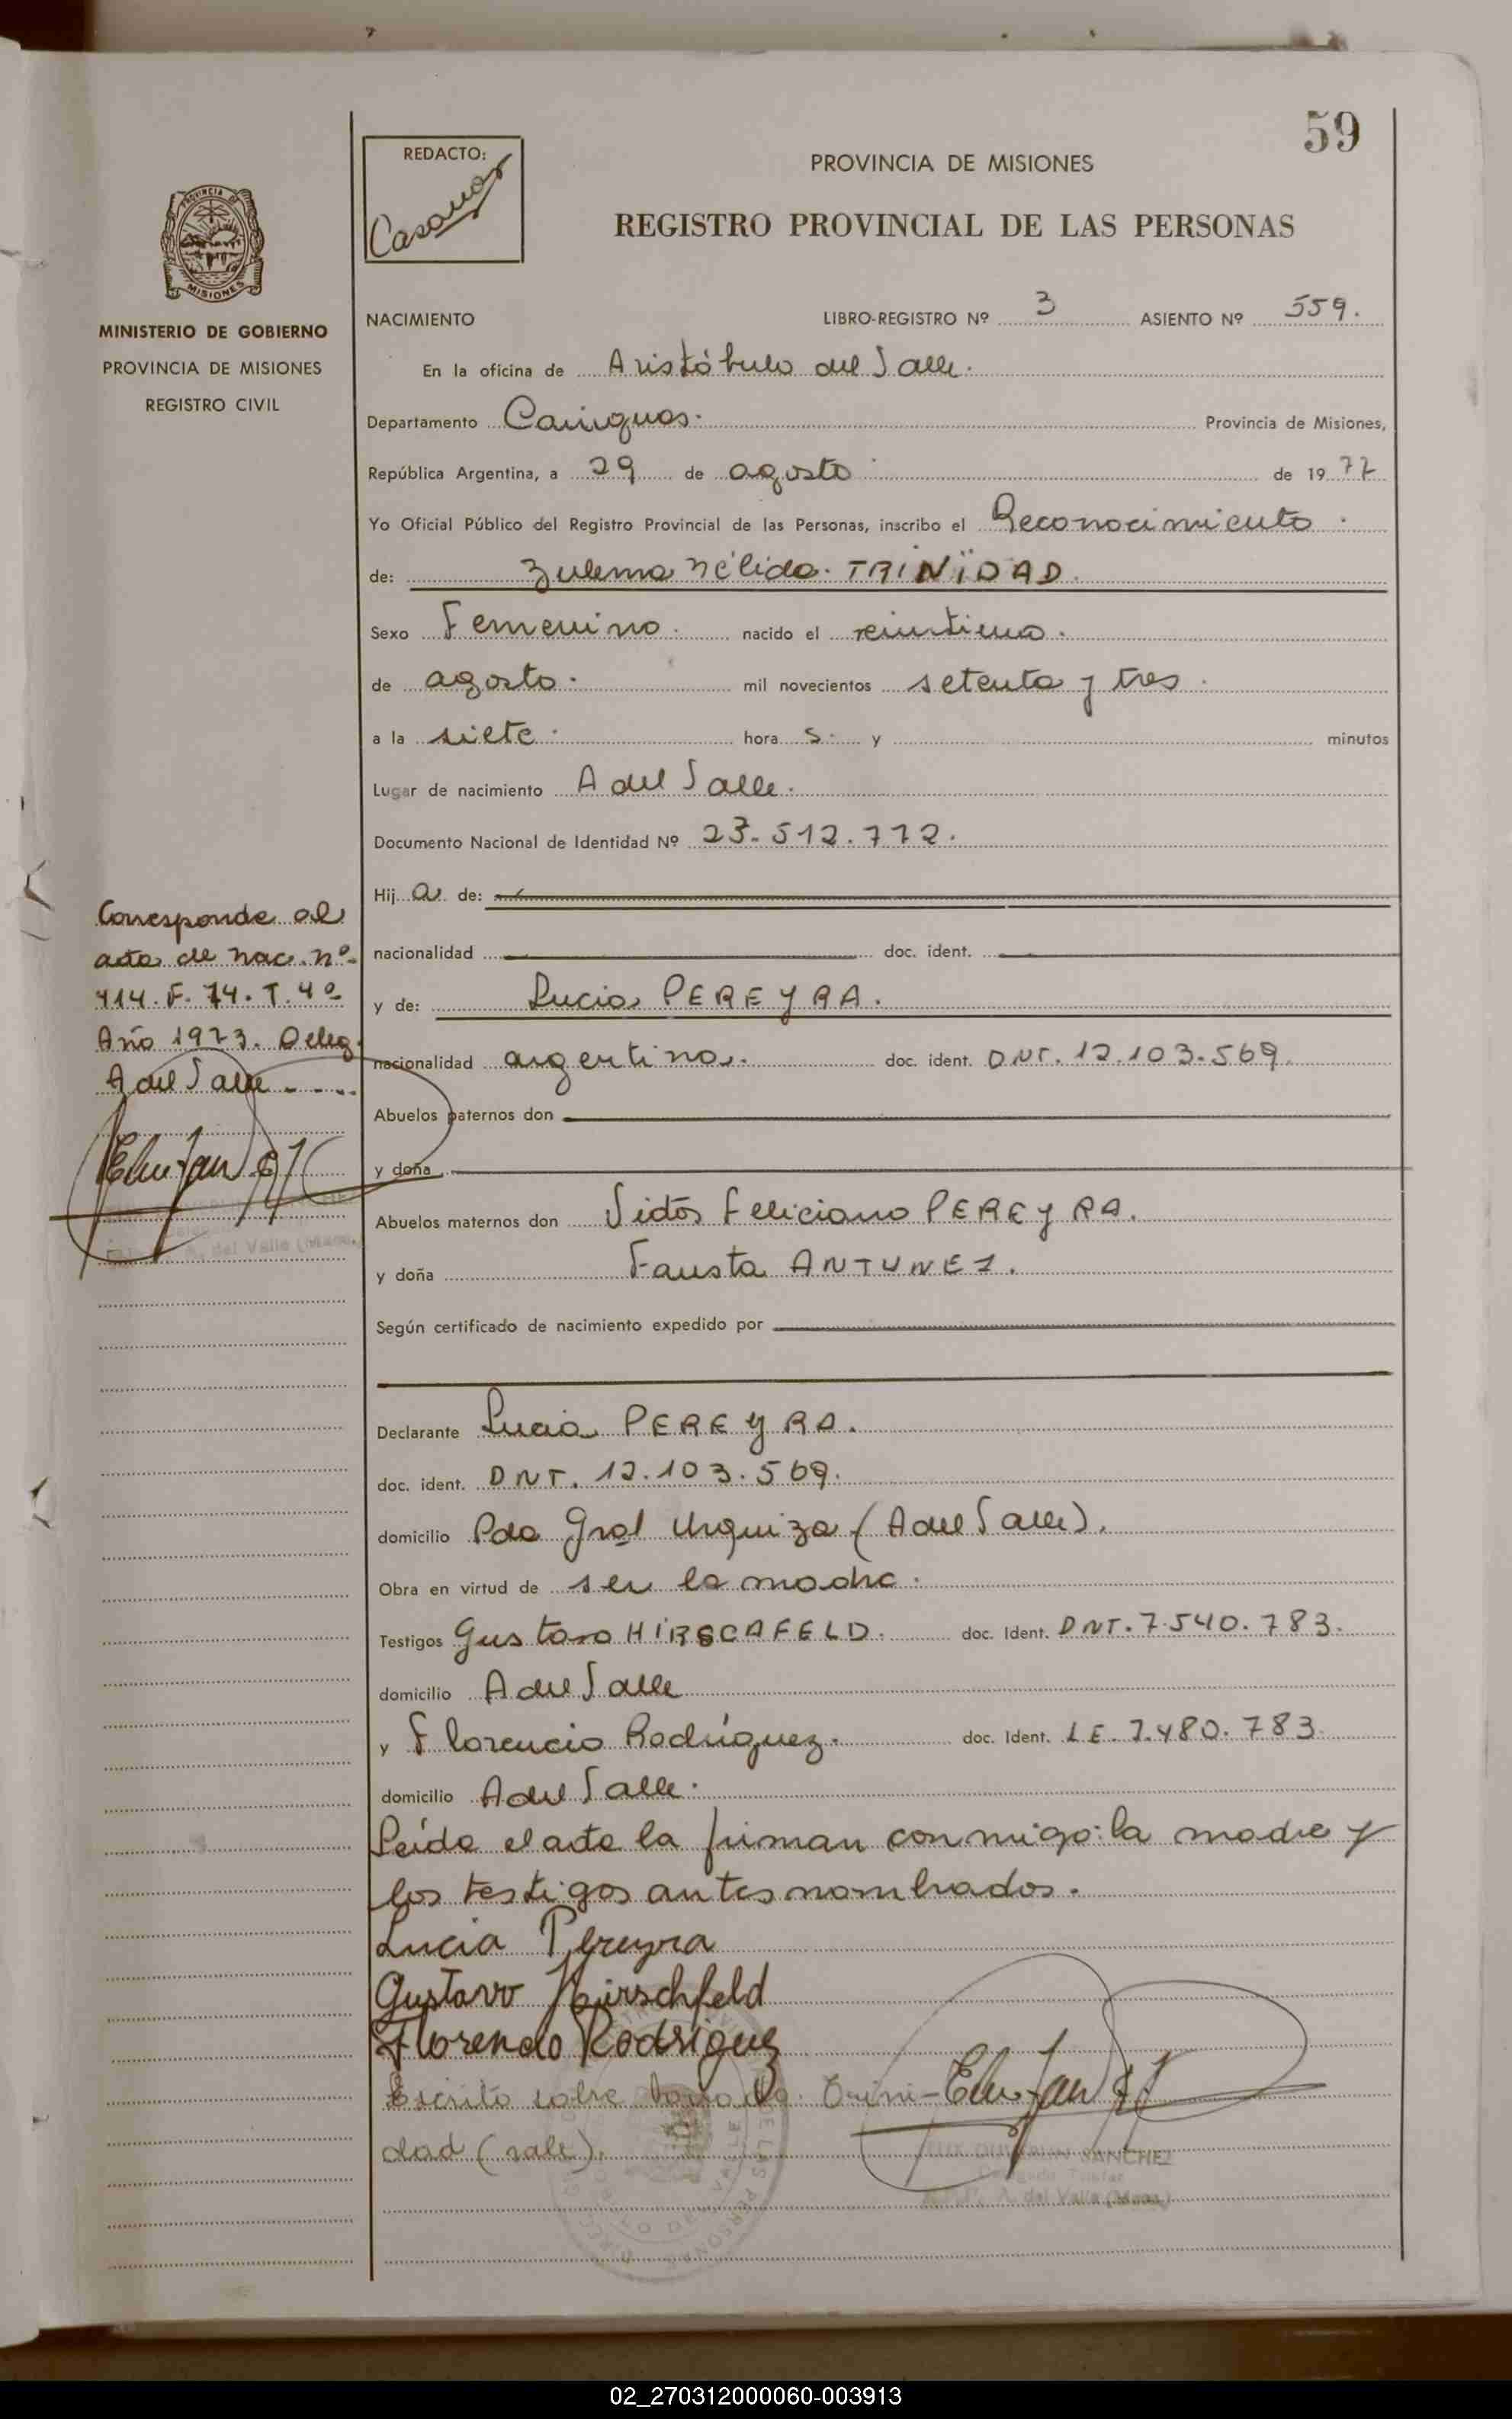 59
REDACTO:
Casanor
PROVINCIA DE MISIONES
REGISTRO PROVINCIAL DE LAS PERSONAS
PROVINCIA DE
MISIONES
MINISTERIO DE GOBIERNO
PROVINCIA DE MISIONES
REGISTRO CIVIL
NACIMIENTO LIBRO-REGISTRO Nº 3 ASIENTO Nº 559.
En la oficina de Aristóbulo del Valle.
Departamento Cainguas. Provincia de Misiones,
República Argentina, a 29 de agosto de 1977
Yo Oficial Público del Registro Provincial de las Personas, inscribo el Reconocimiento.
de: Zulema Nélida. TRINIDAD.
Sexo Femenino. nacido el veintiuno.
de agosto. mil novecientos setenta y tres.
a la siete. hora s. y minutos
Lugar de nacimiento A del Valle.
Documento Nacional de Identidad Nº 23.512.772.
Hij a de:
nacionalidad doc. ident.
y de: Lucia PEREYRA.
nacionalidad argentina. doc. ident. DNI. 12.103.569.
Abuelos paternos don
y doña
Abuelos maternos don Vidos Feliciano PEREYRA.
y doña Fausta ANTUNEZ.
Según certificado de nacimiento expedido por
Declarante Lucia PEREYRA.
doc. ident. DNI. 12.103.569.
domicilio Pdo Gral Urquiza (A del Valle).
Obra en virtud de ser la madre.
Testigos Gustavo HIRSCAFELD. doc. Ident. DNI. 7.540.783.
domicilio A del Valle
y Florencio Rodríguez. doc. Ident. LE. 7.480.783.
domicilio A del Valle.
Leída el acta la firman conmigo: la madre y
los testigos antes nombrados.
Lucia Pereyra
Gustavo Hirschfeld
Florencio Rodriguez
Escrito sobre borrado. Trini-
dad (vale).
SANCHEZ
A. del Valle (Mnes.)
Corresponde al
acta de nac. nº
414. F. 74. T. 4º
Año 1973. Deleg.
A del Valle
A. del Valle (Mnes.)
02_270312000060-003913